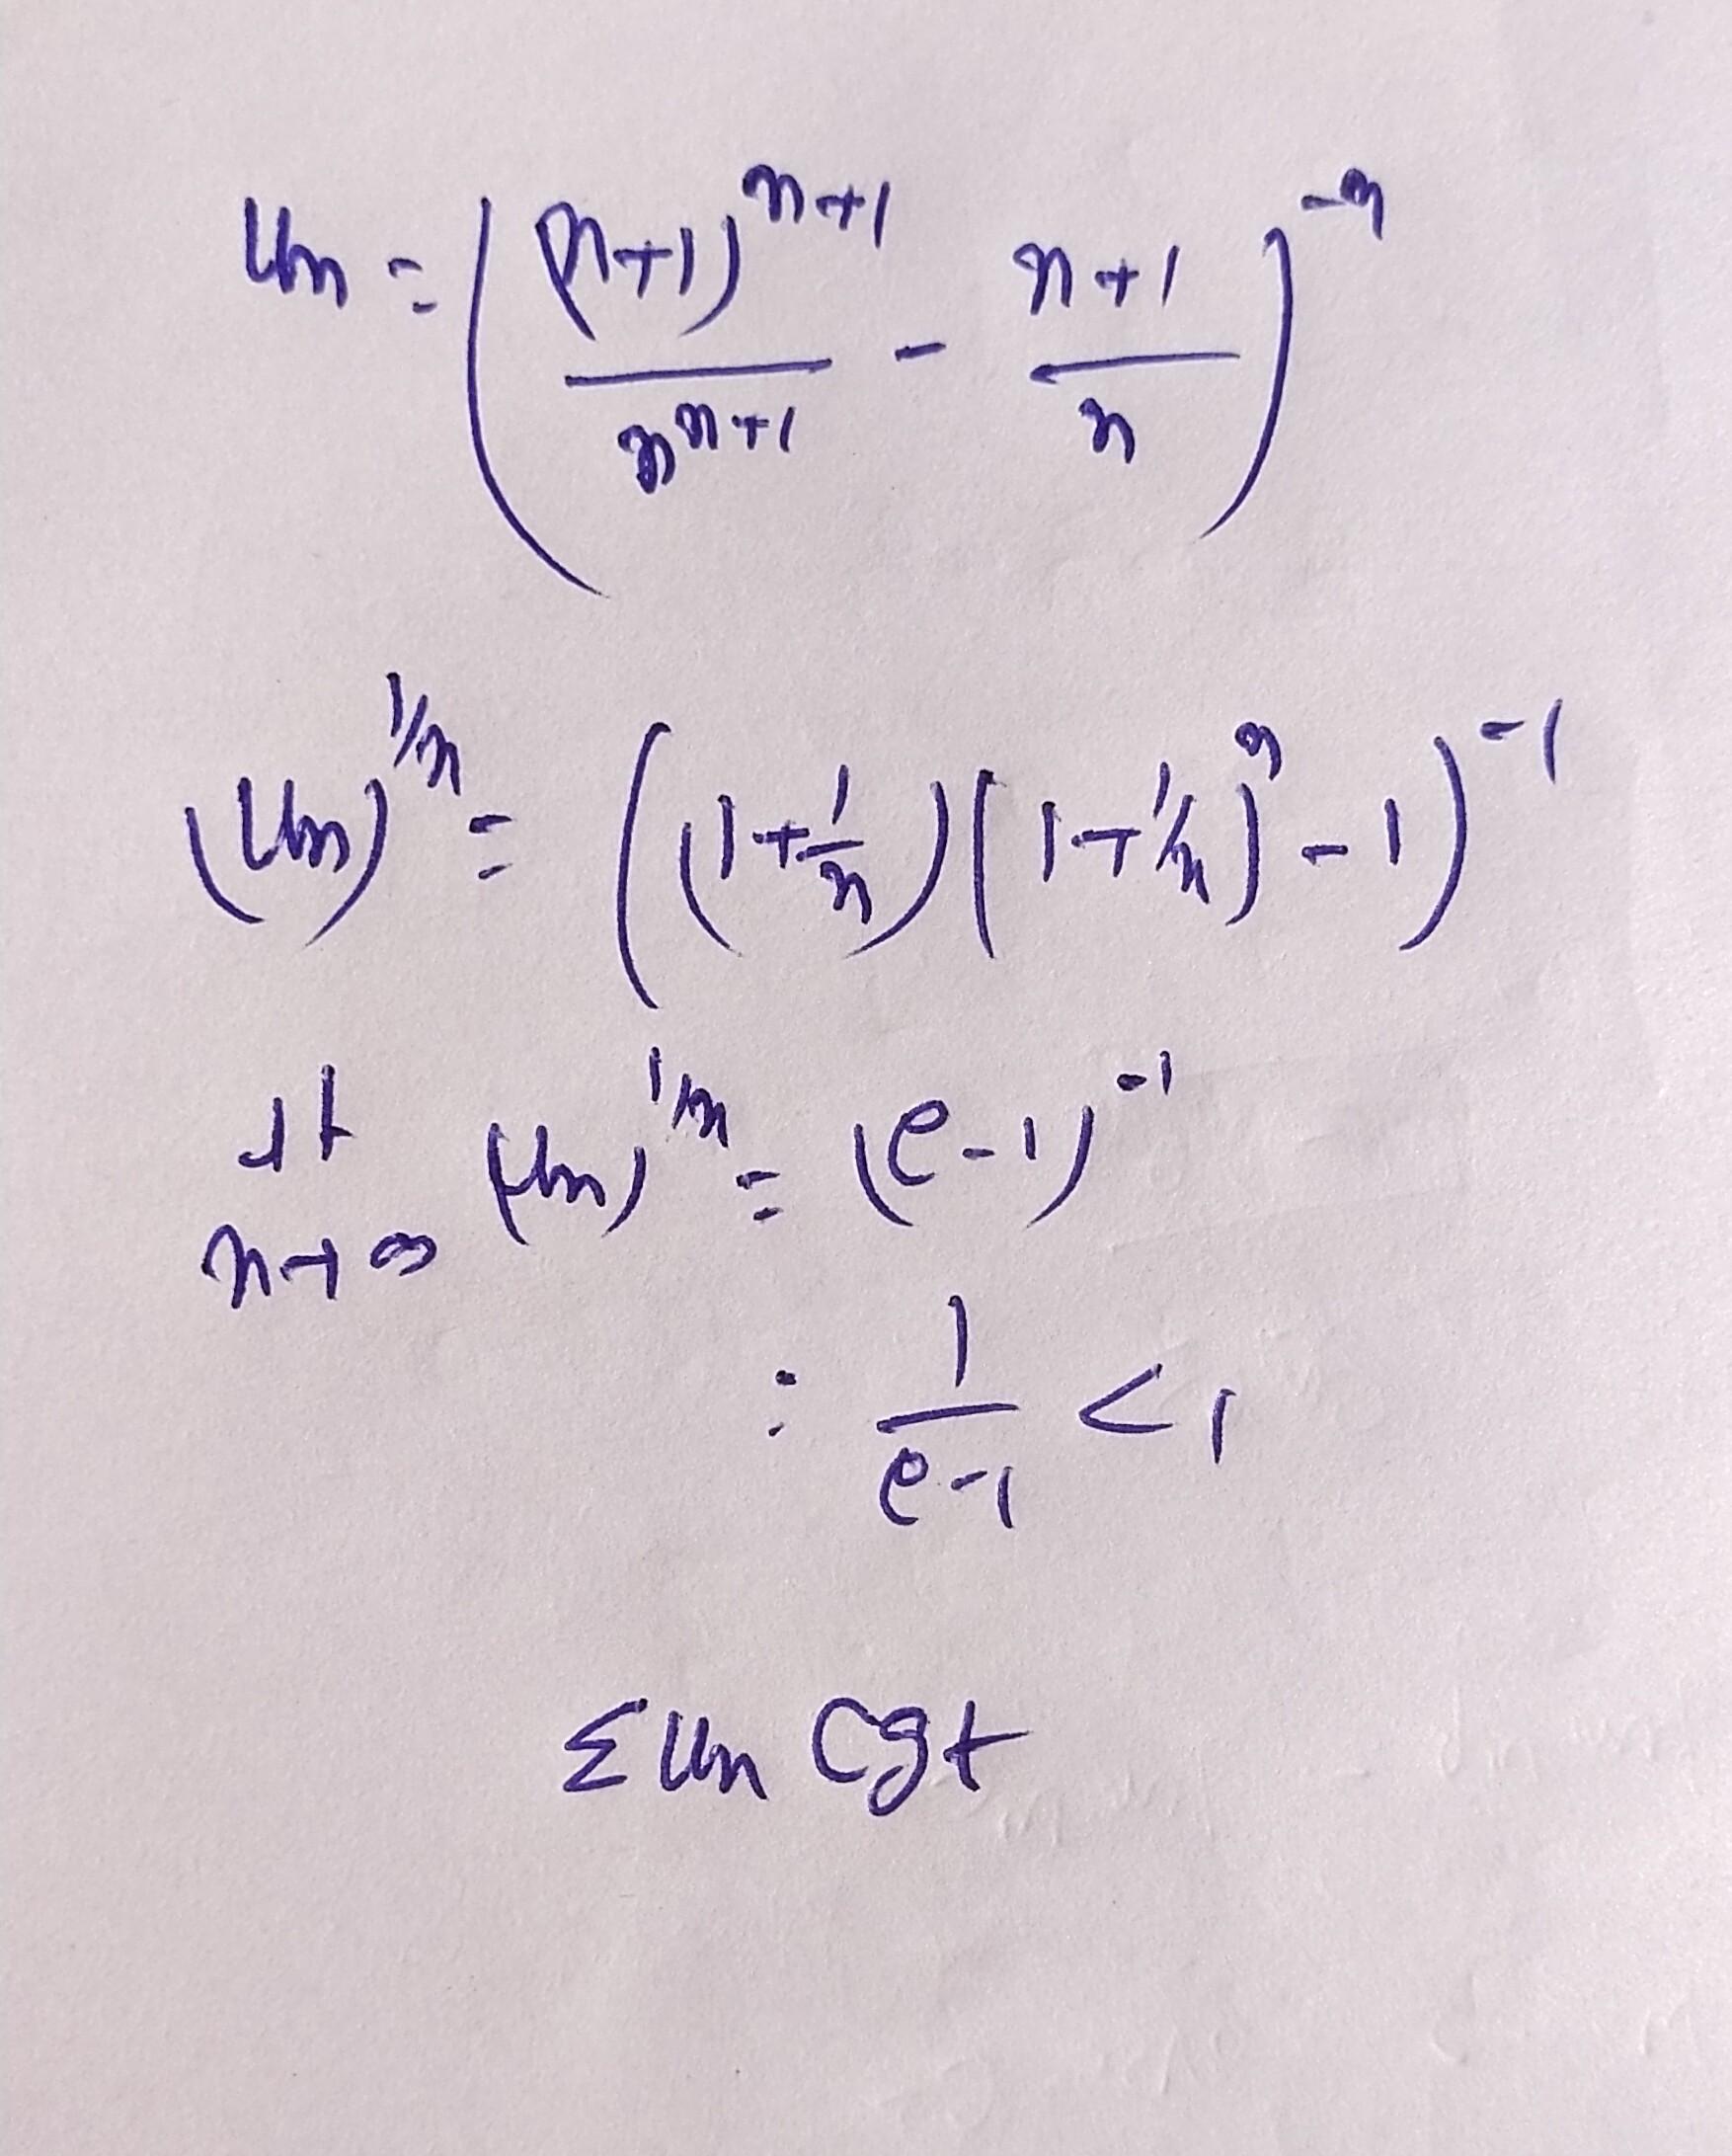 Un = ( (n+1)^{n+1} / n^{n+1} - n+1 / n )^{-n}
(Un)^{1/n} = ( (1+1/n) (1+1/n)^n - 1 )^{-1}
lt n→∞ (Un)^{1/n} = (e-1)^{-1}
= 1/e-1 < 1
Σ Un Cgt